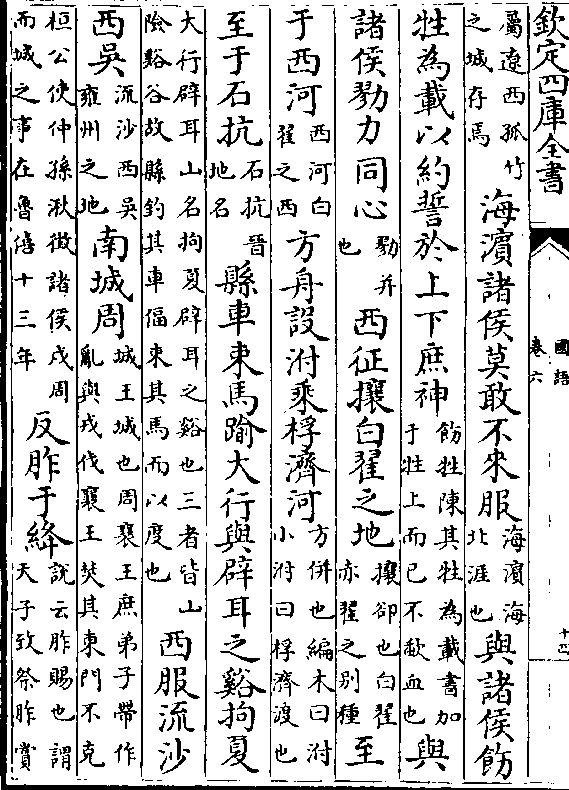 欽定四庫全書 國語 卷六
屬遼西孤竹之城存焉 海濱諸侯莫敢不來服 海濱海北涯也 與諸侯飭
牲為載以約誓於上下庶神 飭牲陳其牲為載書加于牲上而已不歃血也 與
諸侯勠力同心 勠并也 西征攘白翟之地 攘卻也白翟亦翟之別種 至
于西河 西河白翟之西 方舟設泭乘桴濟河 方併也編木曰泭小泭曰桴濟渡也
至于石抗 石抗晉地名 縣車束馬踰大行與辟耳之谿拘夏
大行辟耳山名拘夏辟耳之谿也三者皆山險谿谷故縣鈎其車偪束其馬而以度也 西服流沙
西吳 流沙西吳雍州之地 南城周 城王城也周襄王庶弟子帶作亂與戎伐襄王焚其東門不克
桓公使仲孫湫徵諸侯戍周而城之事在魯僖十三年 反胙于絳 說云胙賜也謂天子致祭胙賞